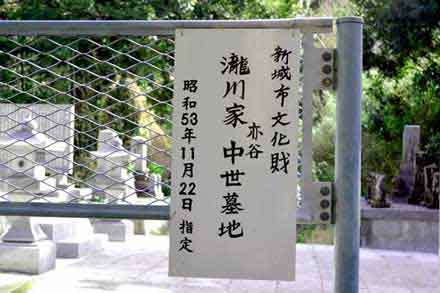 新城市文化財
亦谷
瀧川家中世墓地
昭和53年11月22日指定